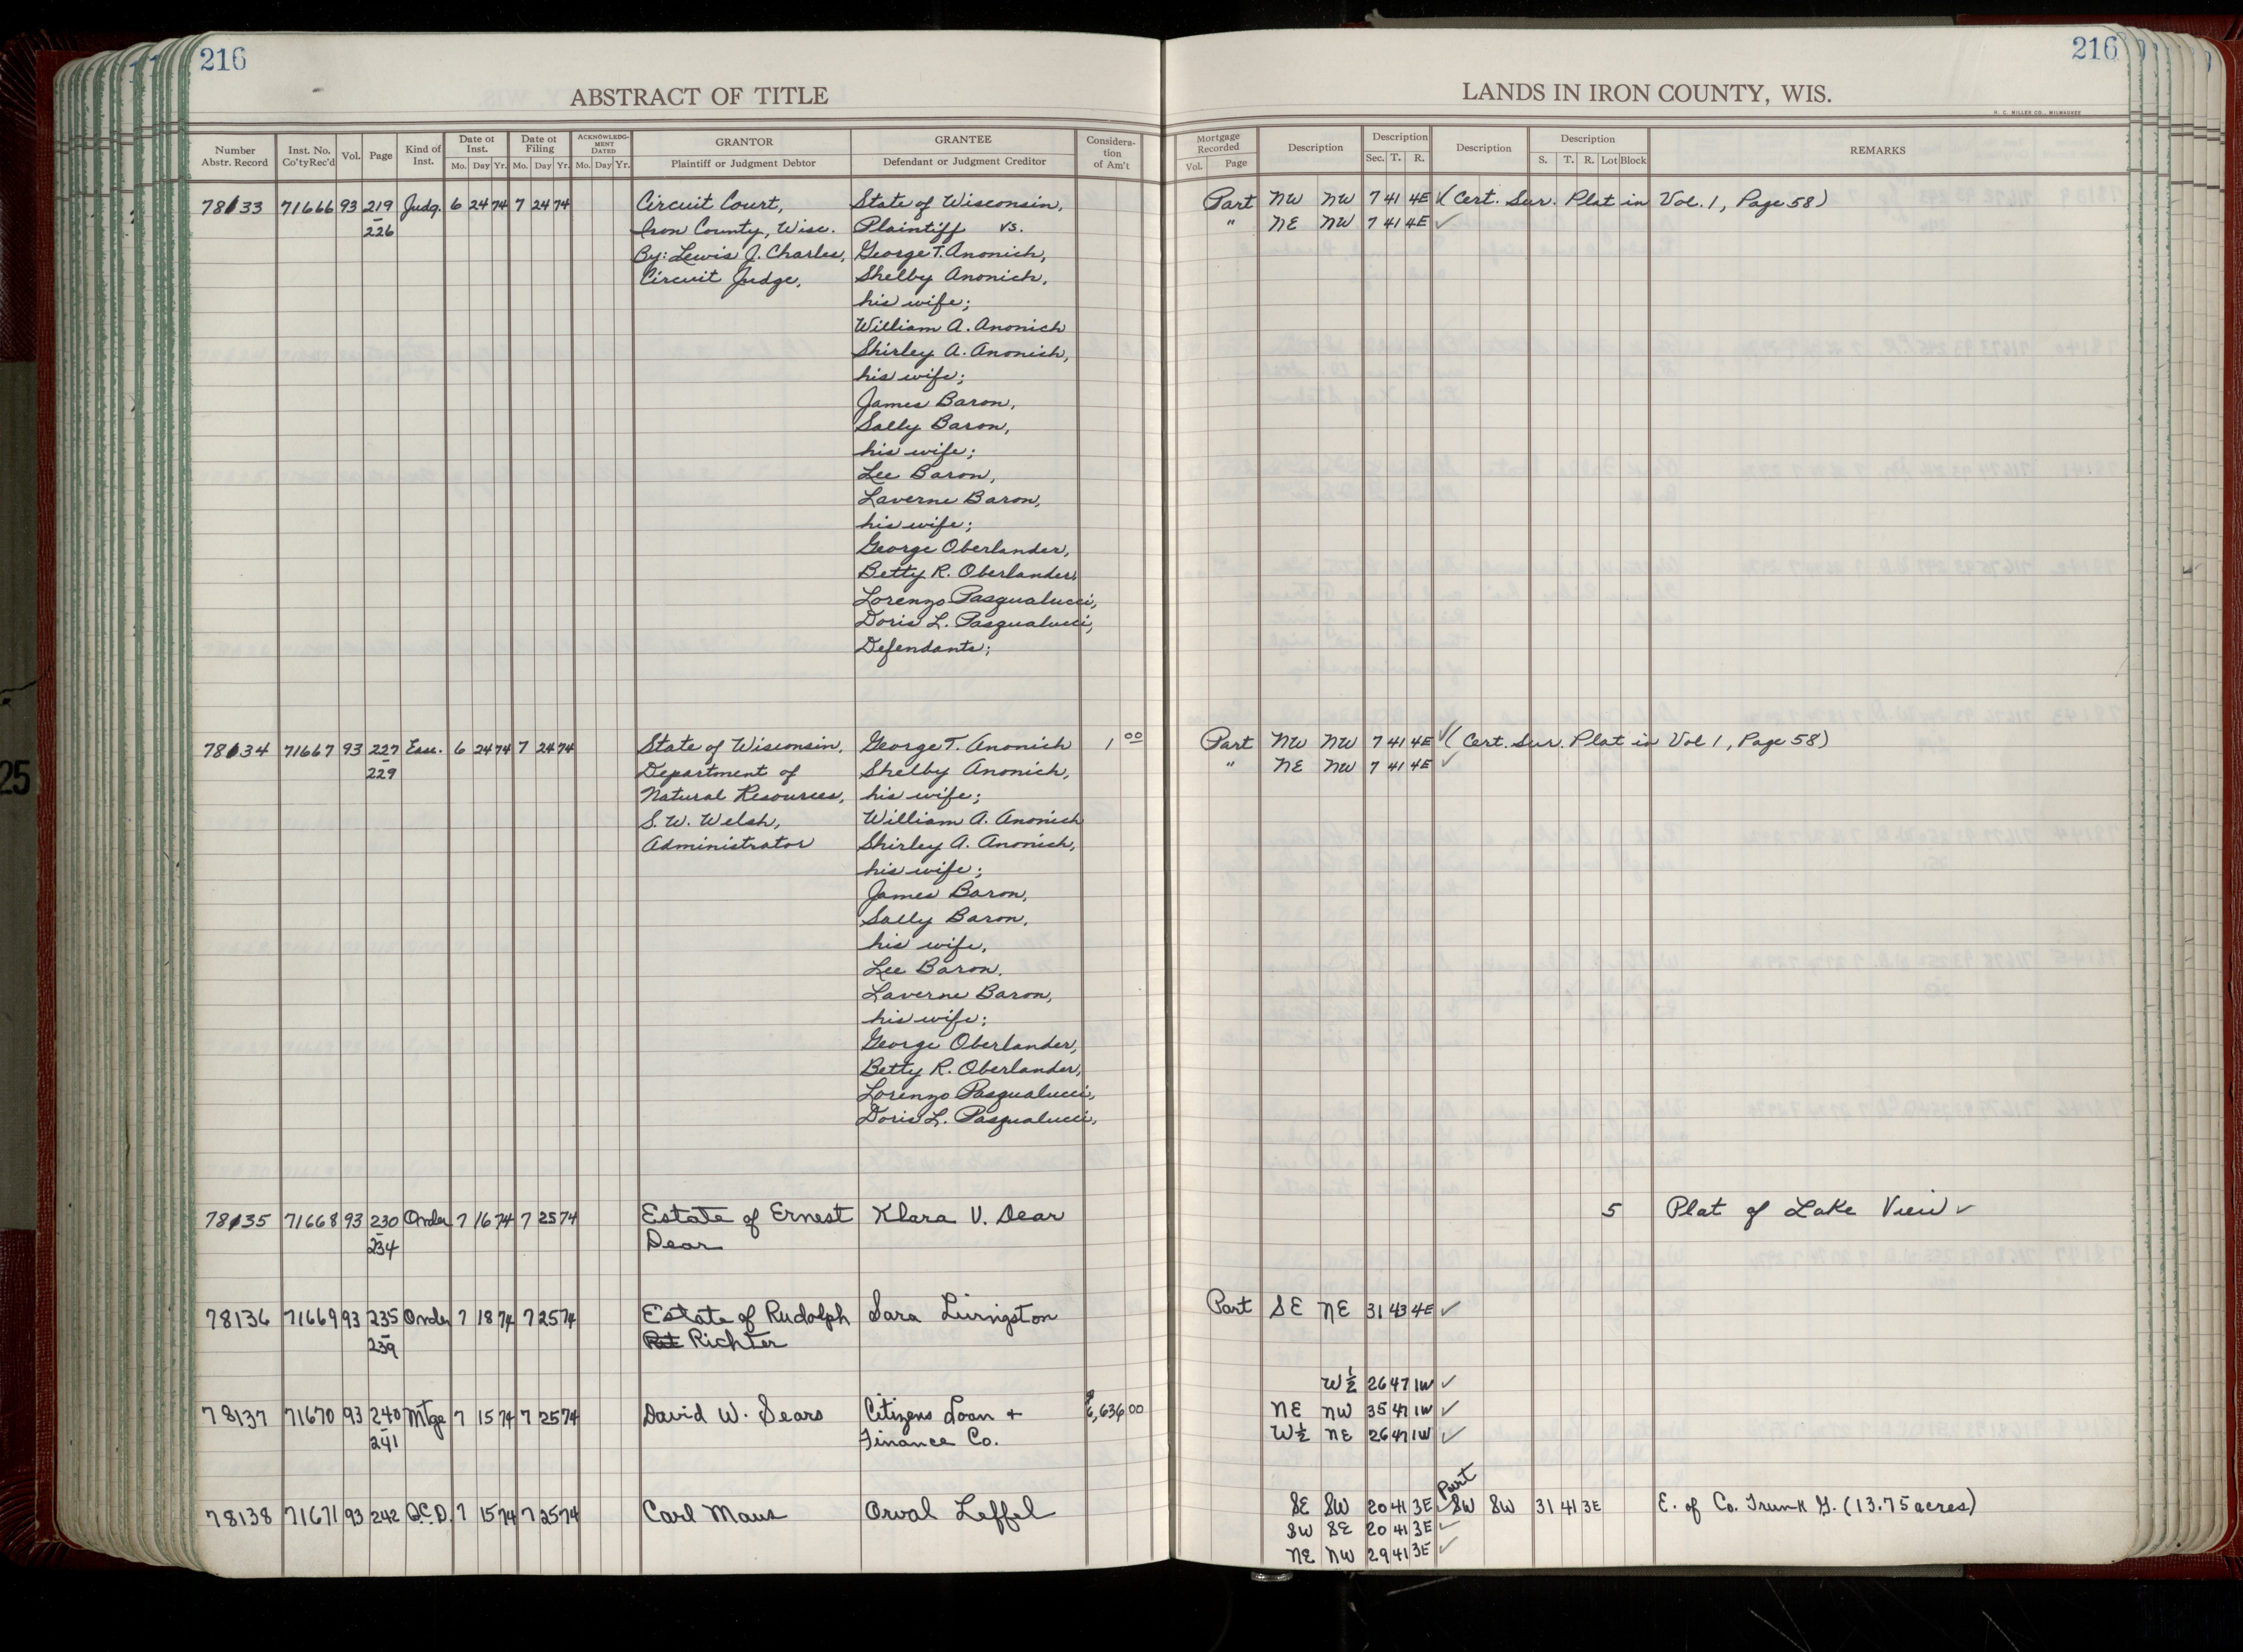 216
ABSTRACT OF TITLE
Number Abstr. Record Inst. No. Co'ty Rec'd Vol. Page Kind of Inst. Date of Inst. Mo. Day Yr. Date of Filing Mo. Day Yr. ACKNOWLEDGMENT DATED Mo. Day Yr. GRANTOR Plaintiff or Judgment Debtor GRANTEE Defendant or Judgment Creditor Considera-tion of Am't
78133 71666 93 219 Judg. 6 24 74 7 24 74 Circuit Court, State of Wisconsin,
226 Iron County, Wisc. Plaintiff vs.
By: Lewis J. Charles, George T. Anonich,
Circuit Judge, Shelby Anonich,
his wife;
William A. Anonich
Shirley A. Anonich,
his wife;
James Baron,
Sally Baron,
his wife;
Lee Baron,
Laverne Baron,
his wife;
George Oberlander,
Betty R. Oberlander,
Lorenzo Pasqualucci,
Doris L. Pasqualucci,
Defendants;
78134 71667 93 227 Ease. 6 24 74 7 24 74 State of Wisconsin, George T. Anonich 1 00
229 Department of Shelby Anonich,
Natural Resources, his wife;
S. W. Welsh, William A. Anonich
Administrator Shirley A. Anonich,
his wife;
James Baron,
Sally Baron,
his wife,
Lee Baron.
Laverne Baron,
his wife;
George Oberlander,
Betty R. Oberlander,
Lorenzo Pasqualucci,
Doris L. Pasqualucci,
78135 71668 93 230 Order 7 16 74 7 25 74 Estate of Ernest Klara V. Dear
234 Dear
78136 71669 93 235 Order 7 18 74 7 25 74 Estate of Rudolph Sara Livingston
239 Richter
78137 71670 93 240 Mtge 7 15 74 7 25 74 David W. Sears Citizens Loan + 6,636 00
241 Finance Co.
78138 71671 93 242 Q.C.D. 7 15 74 7 25 74 Carl Maus Orval Leffel
216
LANDS IN IRON COUNTY, WIS.
H. C. MILLER CO., MILWAUKEE
Mortgage Recorded Vol. Page Description Description Sec. T. R. Description Description S. T. R. Lot Block REMARKS
Part NW NW 7 41 4E ✓ (Cert. Sur. Plat in Vol. 1, Page 58)
" NE NW 7 41 4E ✓
Part NW NW 7 41 4E ✓ (Cert. Sur. Plat in Vol 1, Page 58)
" NE NW 7 41 4E ✓
5 Plat of Lake View ✓
Part SE NE 31 43 4E ✓
W½ 26 47 1W ✓
NE NW 35 47 1W ✓
W½ NE 26 47 1W ✓
Part
SE SW 20 41 3E ✓ SW SW 31 41 3E E. of Co. Trunk G. (13.75 acres)
SW SE 20 41 3E ✓
NE NW 29 41 3E ✓